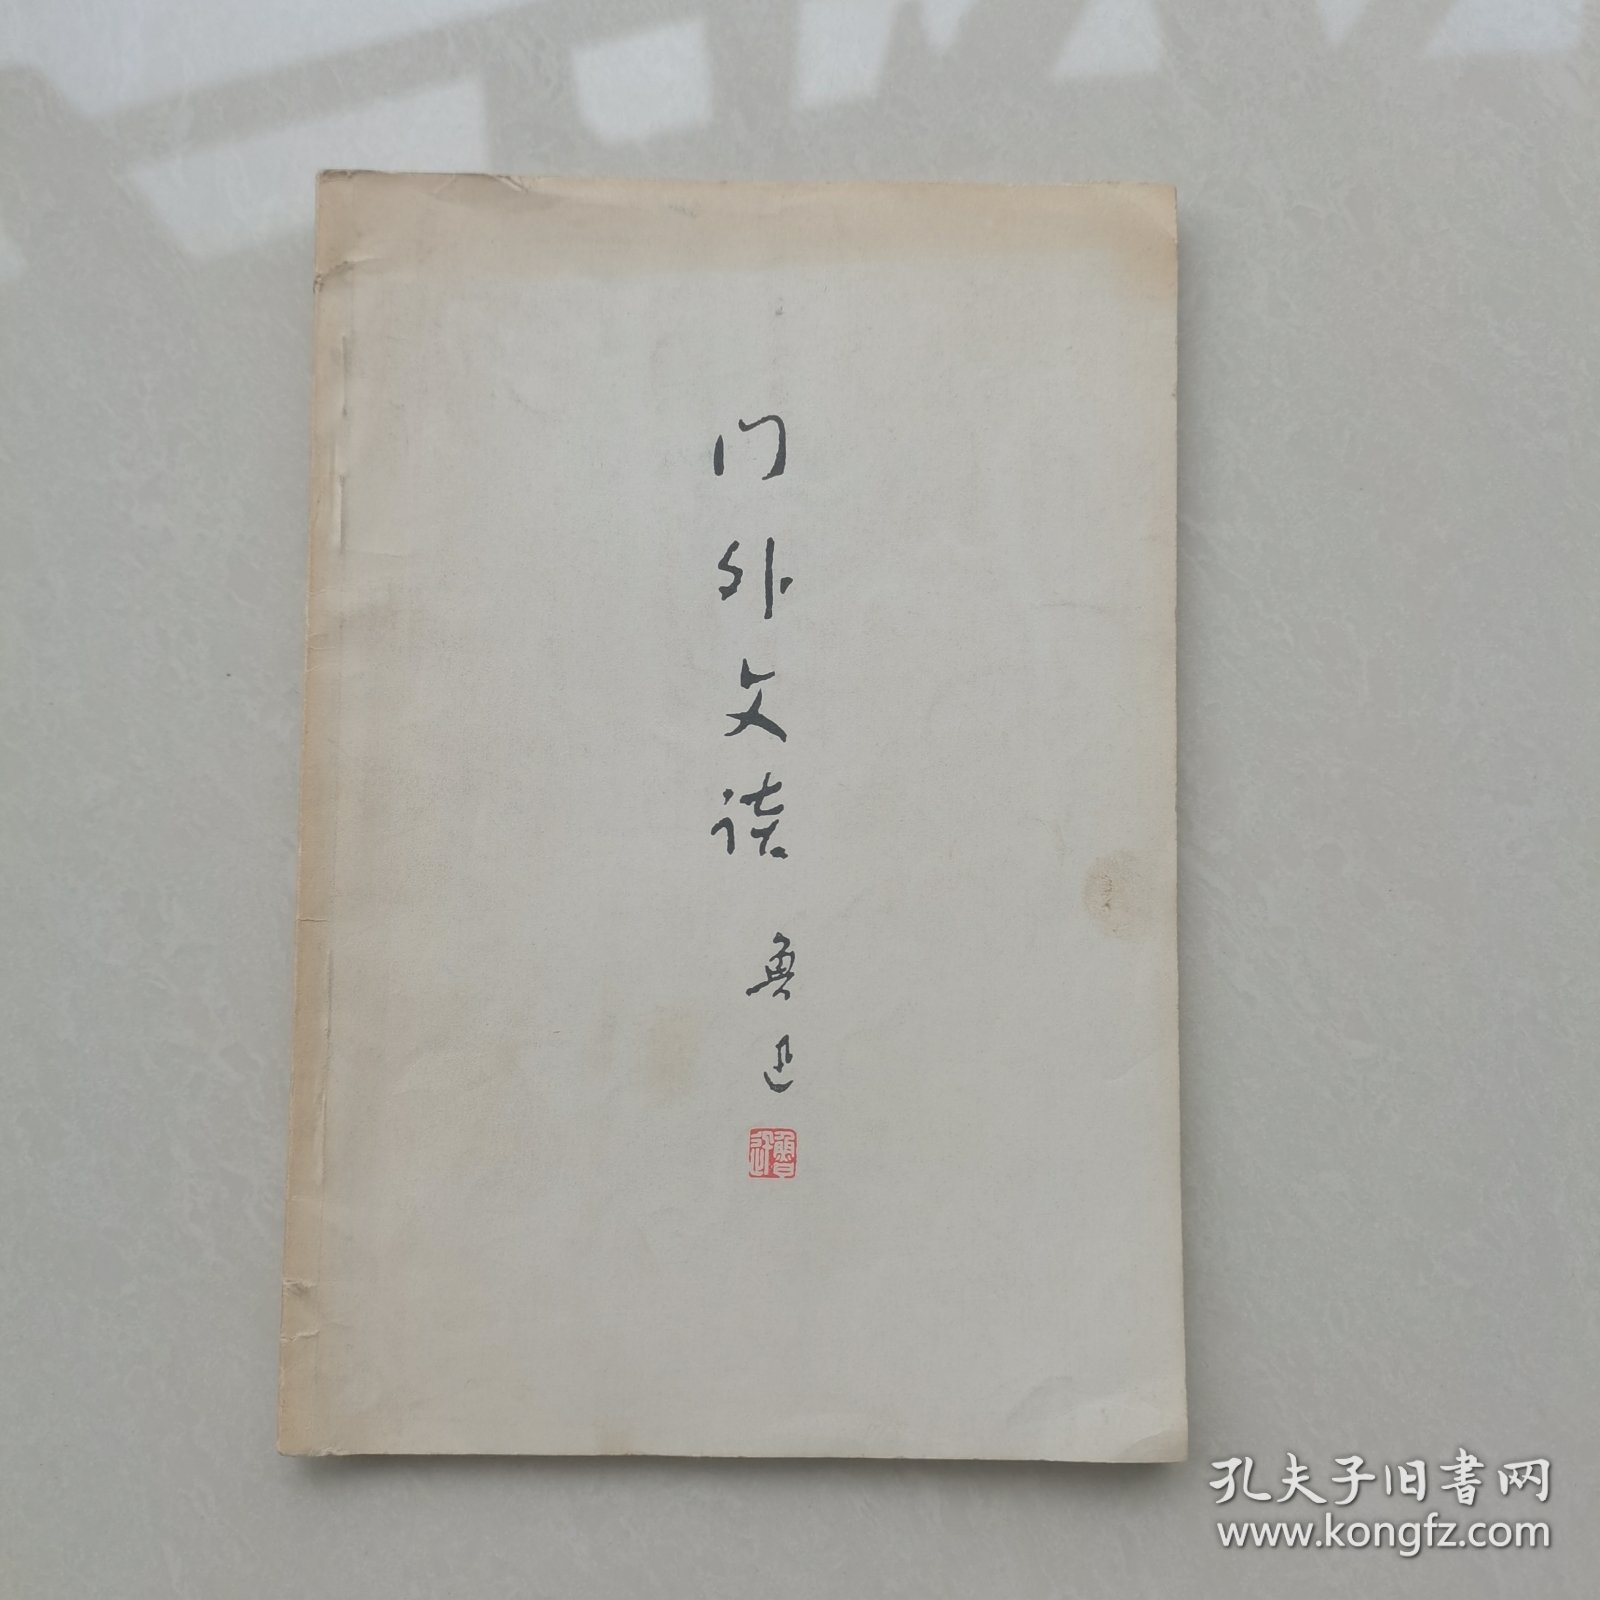 门外文谈
鲁迅
鲁迅
孔夫子旧书网
www.kongfz.com